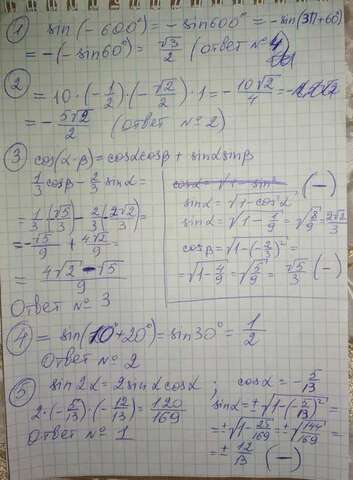 ① sin(-600°) = -sin600° = -sin(3π+60)
= -(-sin60°) = √3/2 (ответ № 4)
② = 10·(-1/2)·(-√2/2)·1 = -10√2/4 =
= -5√2/2 (ответ № 2)
③ cos(α-β) = cosα cosβ + sinα sinβ
1/3 cosβ - 2/3 sinα =
= 1/3(√5/3) - 2/3(2√2/3) =
= -√5/9 + 4√2/9 =
= (4√2 - √5)/9
Ответ № 3
cosα = √1-sin² , (-)
sinα = √1-cos²α
sinα = √1-1/9 = √8/9 = 2√2/3
cosβ = √1-(-2/3)² =
= √1-4/9 = √5/9 = √5/3 (-)
④ = sin(10°+20°) = sin30° = 1/2
Ответ № 2
⑤ sin2α = 2sinα cosα ; cosα = -5/13
2·(-5/13)·(-12/13) = 120/169
Ответ № 1
sinα = ±√1-(-5/13)² =
= ±√1-25/169 = ±√144/169 =
= ± 12/13 (-)